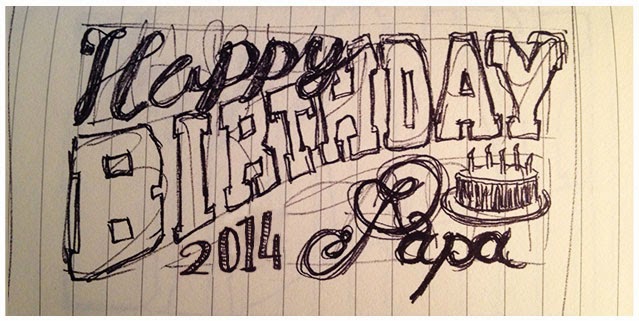 Happy
BIRTHDAY
2014 Papa